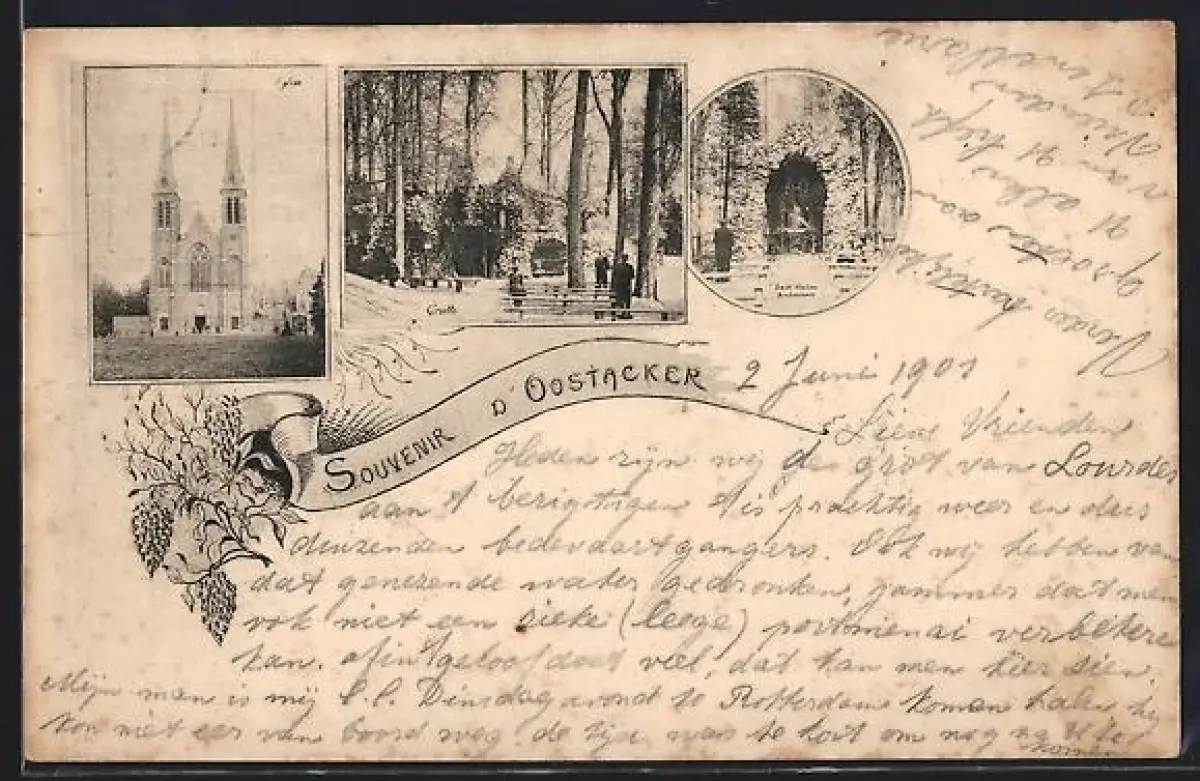 Eglise
Grotte
SOUVENIR D'OOSTACKER
2 Juni 1901
Lieve Vrienden
Heden zijn wij de grot van Lourdes
aan 't bezigtigen 't is prachtig weer en daer
duizenden bedevaartgangers. Ook wij hebben van
dat genezende water gedronken, jammer dat men
ook niet een zieke (leege) portmenai verbetere
kan. afin 't geloof doet veel, dat kan men hier zien.
Mijn man is mij Dinsdagavond te Rotterdam komen halen hij
kon niet eer van boord weg. de tijd was te kort om nog na te
komen
groeten aan
allen
Vrienden